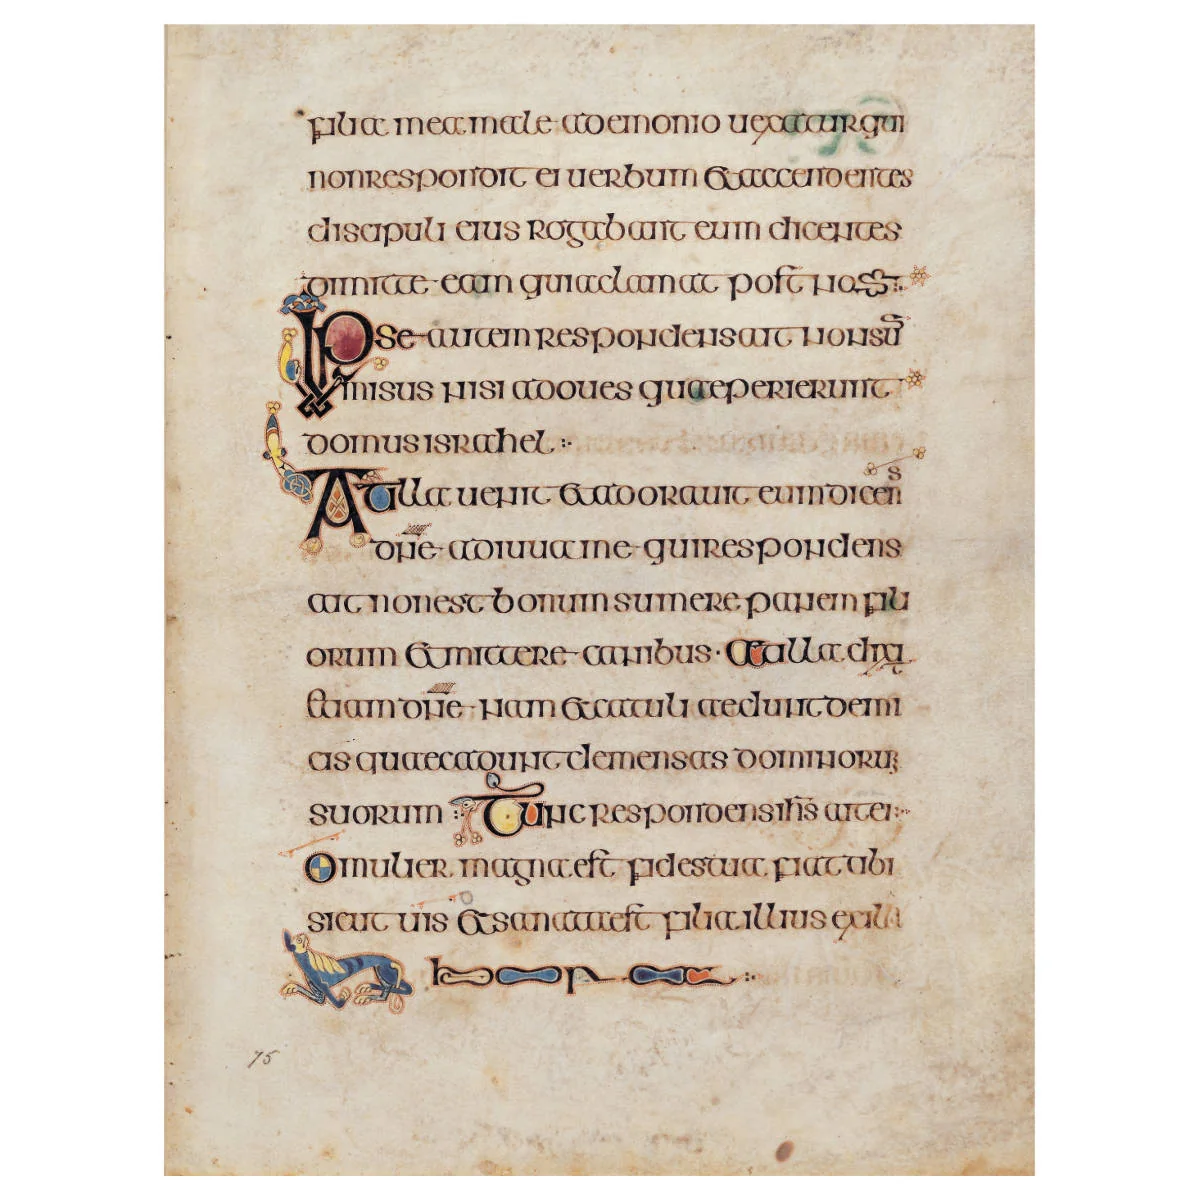 filia mea male a demonio uexatur qui
non respondit ei uerbum et accendentes
discipuli eius rogabant eum dicentes
dimitte eam quia clamat post nos
Ipse autem respondens ait non sū
misus nisi ad oues quae perierunt
domus israhel
At illa uenit et adorauit eum dicens
dn̄e adiuua me qui respondens
ait non est bonum sumere panem fili
orum et mittere canibus · At illa dixit
etiam dn̄e nam et catuli aedunt de mi
cis quae cadunt de mensas dominoru
suorum Tunc respondens ih̄s ait ei
O mulier magna est fides tua fiat tibi
sicut uis et sanata est filia illius ex illa
hora
75